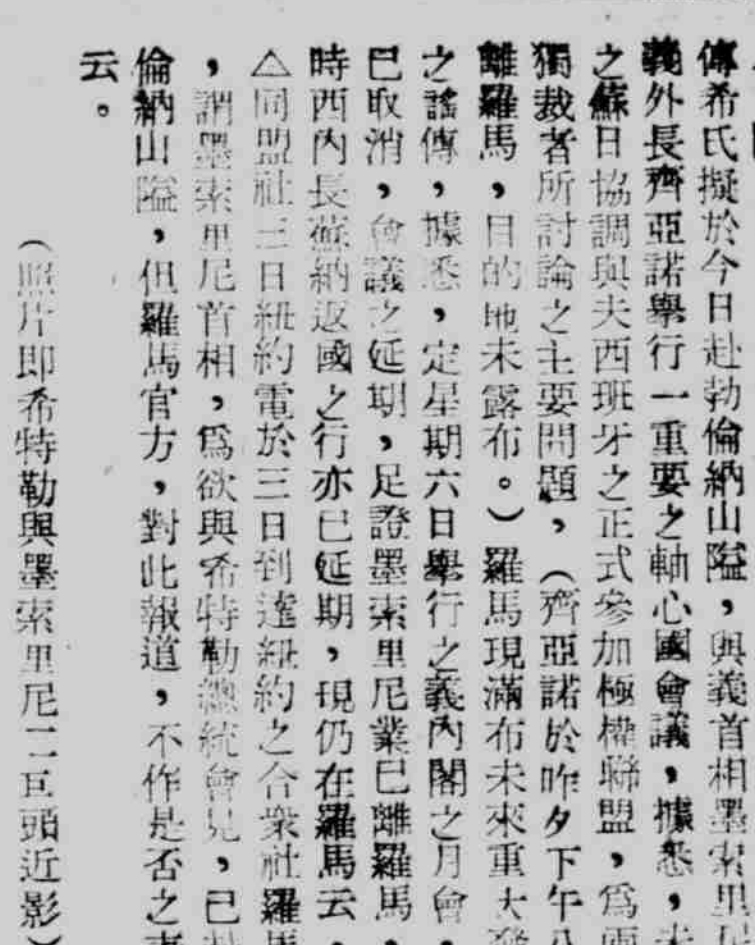 傳希氏擬於今日赴勃倫納山隘，與義首相墨索里
義外長齊亞諾舉行一重要之軸心國會議，據悉，
之蘇日協調與夫西班牙之正式參加極權聯盟，爲
獨裁者所討論之主要問題，（齊亞諾於昨夕下午
離羅馬，目的地未露布。）羅馬現滿布未來重大
之謠傳，據悉，定星期六日舉行之義內閣之月會，
已取消，會議之延期，足證墨索里尼業已離羅馬，
時西內長蘇納返國之行亦已延期，現仍在羅馬云，
△同盟社三日紐約電於三日到達紐約之合衆社羅
，謂墨索里尼首相，爲欲與希特勒總統會見，已
倫納山隘，但羅馬官方，對此報道，不作是否之
云。
（照片即希特勒與墨索里尼二巨頭近影）